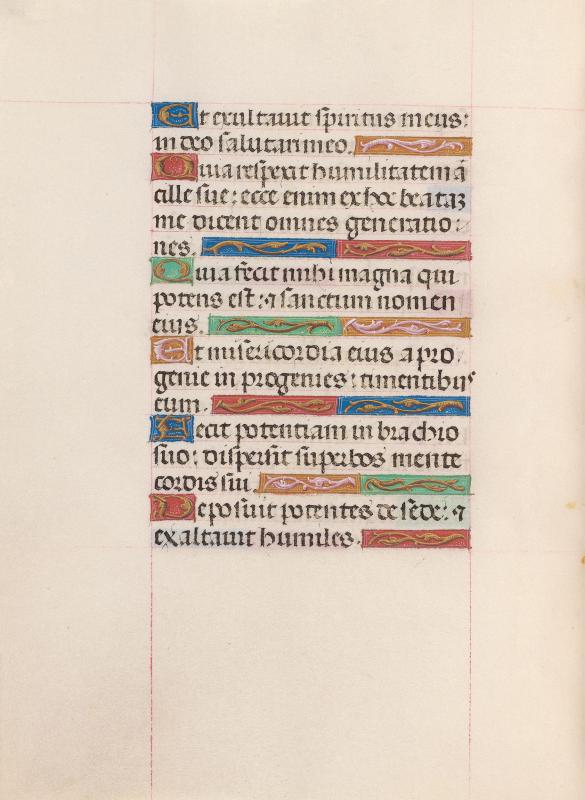 Et exultauit spiritus meus:
in deo salutari meo.
Quia respexit humilitatem ā
cille sue: ecce enim ex hoc beataʒ
me dicent omnes generatio
nes.
Quia fecit mihi magna qui
potens est: ⁊ sanctum nomen
eius.
Et misericordia eius a pro
genie in progenies: timentibus
eum.
Fecit potentiam in brachio
suo: dispersit superbos mente
cordis sui.
Deposuit potentes de sede: ⁊
exaltauit humiles.